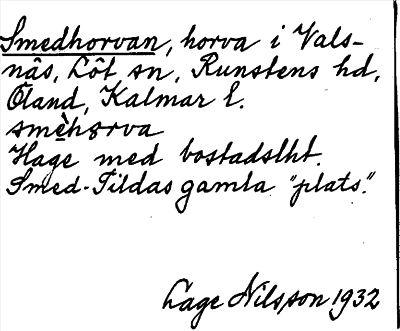 Smedhorvan, horva i Vals-
näs, Löt sn, Runstens hd,
Öland, Kalmar l.
smèhorva
Hage med bostadslht.
Smed-Tildas gamla "plats."
Lage Nilsson 1932